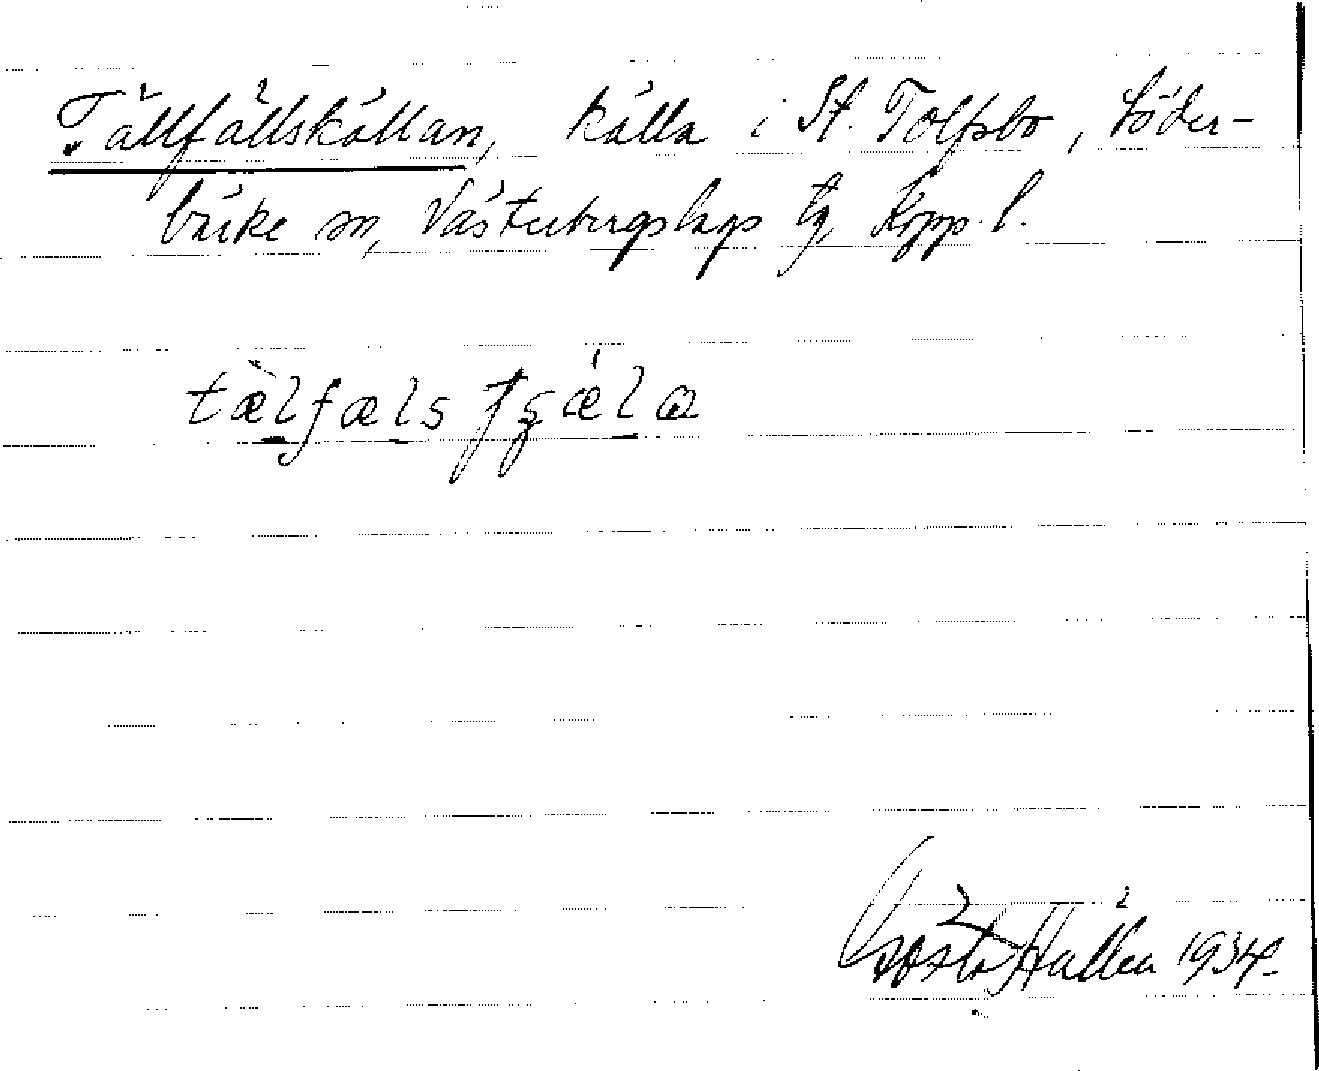 Tällfällskällan, källa i St. Tolfsbo, Söder-
bärke sn, Västerbergslags tg, Kopp. l.
tæ̀lfæls
Gösta Hallén 1934